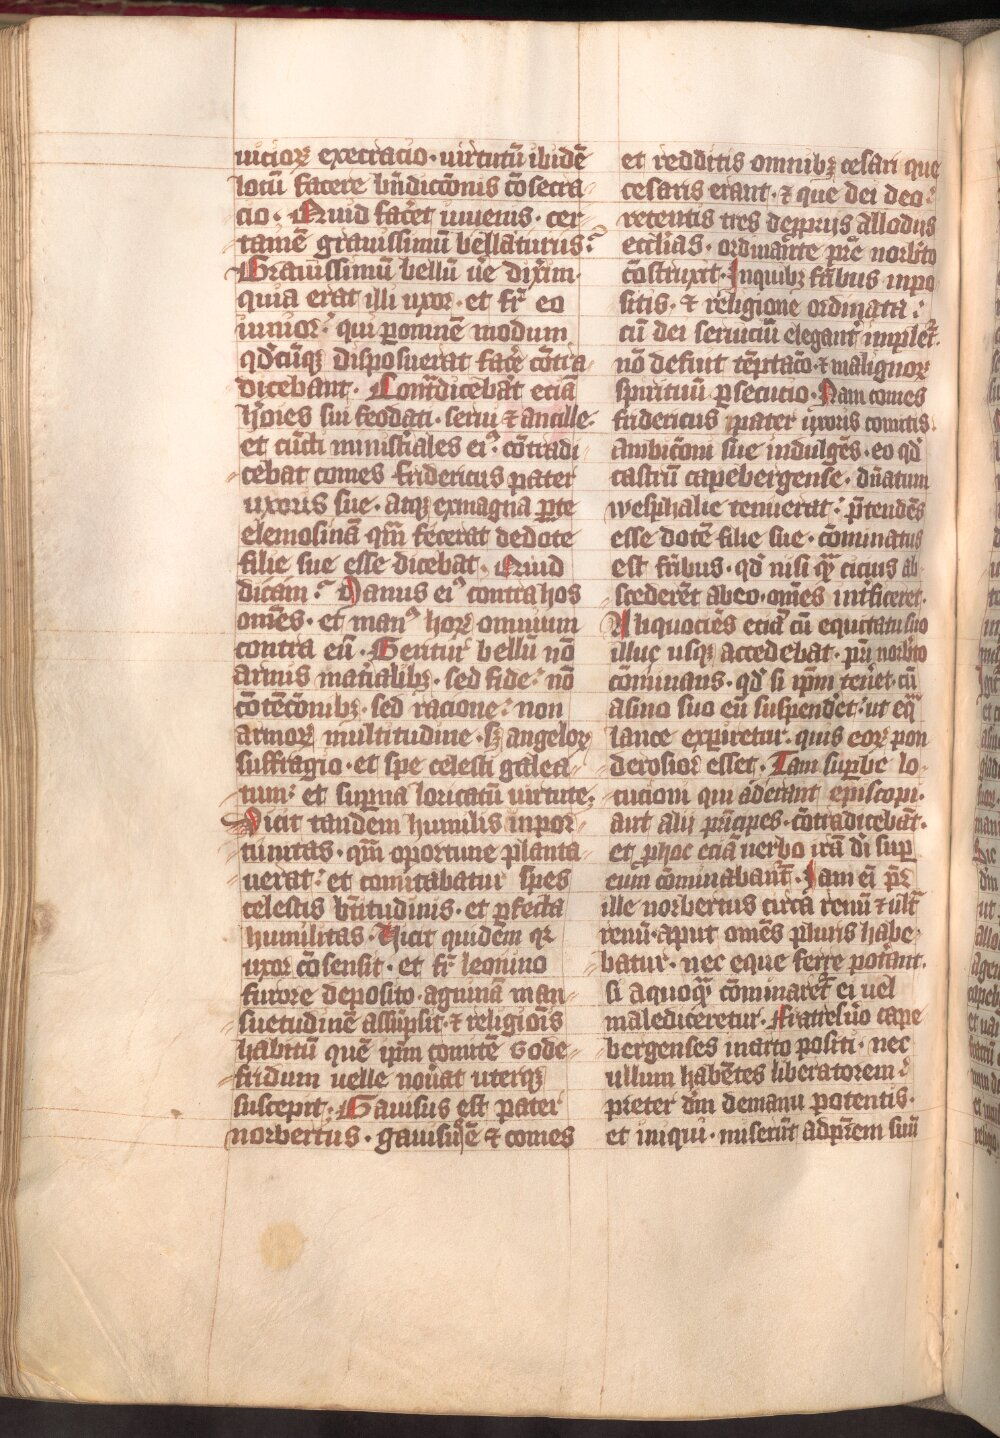 uicior̄ execracio · uirtutū ibidē
locū facere bn̄dictōnis cōsecra
cio · Quid fac̄et iuuenis · cer
tamē grauissimū bellaturus ?
Grauissimū bellū ūe dixim ·
quia erat illi uxor · et fr̄ eo
iunior : qui ꝑomnē modum
qd̄cūqꝫ disposuerat fac̄e cōtra
dicebant · Cont̄dicebāt eciā
hōīes sui feodati · serui ⁊ ancille ·
et cūcti minist̄iales ei9 · cōtradi
cebat comes fridericus pater
uxoris sue · atqꝫ exmagna ꝑte
elemosinā qm̄ fecerat dedote
filie sue esse dicebat · Quid
dicam ? Manus ei9 contra hos
om̄es · et man9 horꝝ omnium
contra eū · Geritur bellū nō
armis mat̄ialibꝫ · sed fide : nō
cōtētōnibꝫ · sed racione : non
armorꝝ multitudine · sꝫ angelorꝝ
suffragio · et spe celesti galea
tum : et suꝑna loricatū uirtute ;
Vicit tandem humilis inpor
tunitas · qm̄ oportune planta
uerat : et comitabatur spes
celestis bt̄itudinis · et ꝑfecta
humilitas · Vicit quidem qꝛ
uxor cōsensit · et fr̄ leonino
furore deposito · agninā man
suetudinē assūpsit · ⁊ religiōis
habitū quē ip̄m comitē Gode
fridum uelle nou̅at uterqꝫ
suscepit · Gauisus est pater
norbertus · gauisusē ⁊ comes
et redditis omnibꝫ cesari que
cesaris erant · ⁊ que dei deo :
retentis tres depprijs allodijs
ecclias · ordināte pr̄e norb̄to
cōstruxit · Inquibꝫ fr̄ibus inpo
sitis · ⁊ religione ordinata :
cū dei seruiciū elegant̄ implet̄ ·
nō defuit tēptacō · ⁊ malignorꝝ
spirituū ꝑsecucio · Nam comes
fridericus pater uxoris comitis
ambicōni sue indulgēs · eo qd̄
castrū capebergense · dn̄atum
wesphalie tenuerat : p̄tendēs
esse dotē filie sue · cōminatus
est fr̄ibus · qd̄ nisi quā cicius ab
scederēt abeo · om̄es int̄ficeret ·
Aliquociēs eciā cū equitatu suo
illuc usqꝫ accedebat · pr̄i norb̄to
cōminans · qd̄ si ip̄m ten̄et · cū
asino suo eū suspend̄et : ut eq̄
lance exꝑiretur · quis eorꝝ pon
derosior esset · Tam suꝑbe lo
tucioni qui aderant episcopi ·
aut alij pn̄cipes · cōtradicebāt ·
et ꝑhoc eciā uerbo irā dī suꝑ
eum cōminabant̄ · Iam eī pr̄
ille norbertus circa renū ⁊ ult̄
renū · aput om̄es pluris habe
batur · nec eque ferre pot̄ant ·
si aquoqᵃ cōminaret̄ ei uel
malediceretur · Fratres ūo cape
bergenses inarto positi · nec
ullum habētes liberatorem :
preter dm̄ demanu potentis ·
et iniqui · miserūt adpr̄em suū